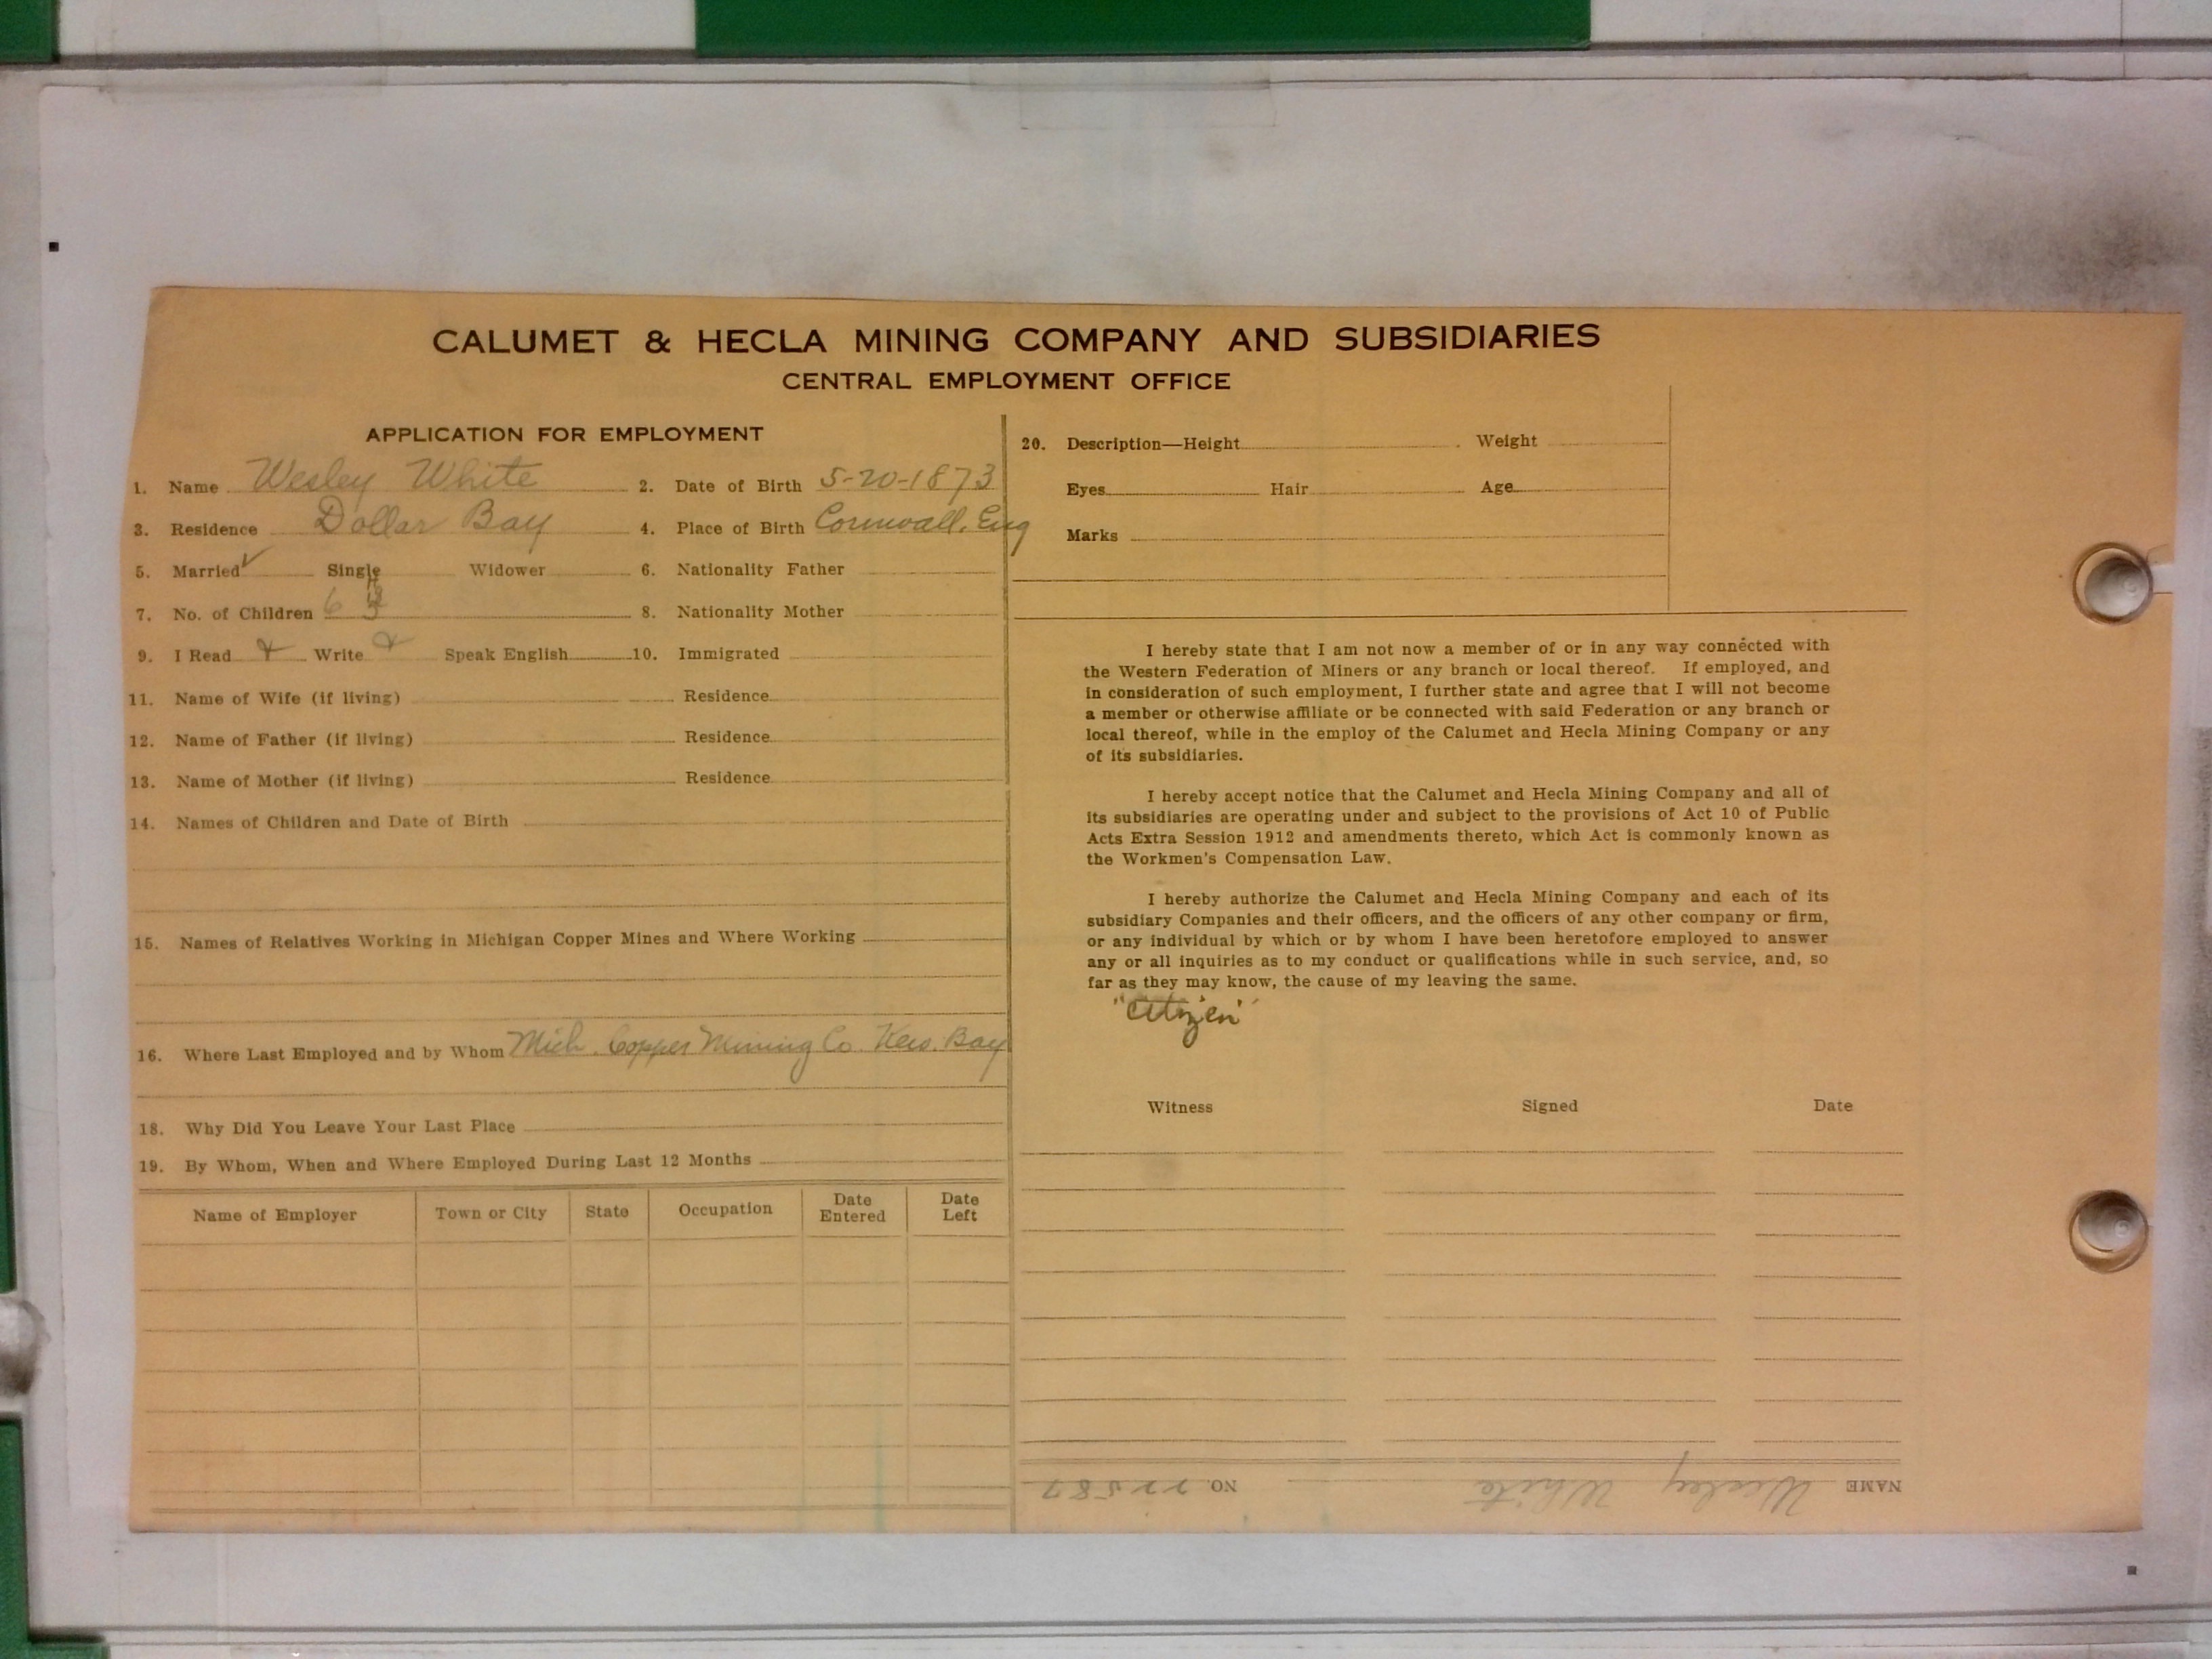 CALUMET & HECLA MINING COMPANY AND SUBSIDIARIES
CENTRAL EMPLOYMENT OFFICE
APPLICATION FOR EMPLOYMENT
1. Name Wesley White 2. Date of Birth 5-20-1873
3. Residence Dollar Bay 4. Place of Birth Cornwall, Eng
5. Married ✓ Single Widower 6. Nationality Father
7. No. of Children 6 8. Nationality Mother
9. I Read Write Speak English 10. Immigrated
11. Name of Wife (if living) Residence
12. Name of Father (if living) Residence
13. Name of Mother (if living) Residence
14. Names of Children and Date of Birth
15. Names of Relatives Working in Michigan Copper Mines and Where Working
16. Where Last Employed and by Whom Mich. Copper Mining Co. Kew. Bay
18. Why Did You Leave Your Last Place
19. By Whom, When and Where Employed During Last 12 Months
Name of Employer Town or City State Occupation Date Entered Date Left
20. Description—Height Weight
Eyes Hair Age
Marks
I hereby state that I am not now a member of or in any way connected with
the Western Federation of Miners or any branch or local thereof. If employed, and
in consideration of such employment, I further state and agree that I will not become
a member or otherwise affiliate or be connected with said Federation or any branch or
local thereof, while in the employ of the Calumet and Hecla Mining Company or any
of its subsidiaries.
I hereby accept notice that the Calumet and Hecla Mining Company and all of
its subsidiaries are operating under and subject to the provisions of Act 10 of Public
Acts Extra Session 1912 and amendments thereto, which Act is commonly known as
the Workmen's Compensation Law.
I hereby authorize the Calumet and Hecla Mining Company and each of its
subsidiary Companies and their officers, and the officers of any other company or firm,
or any individual by which or by whom I have been heretofore employed to answer
any or all inquiries as to my conduct or qualifications while in such service, and, so
far as they may know, the cause of my leaving the same.
"Citizen"
Witness Signed Date
NAME Wesley White NO. 22587